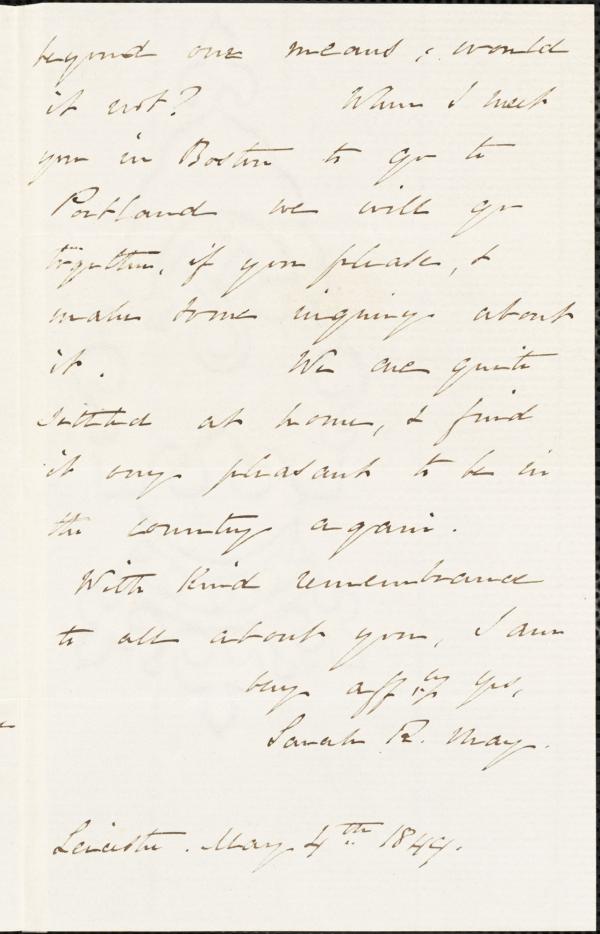 beyond our means, would
it not? When I meet
you in Boston to go to
Portland we will go
together, if you please, &
make some inquiry about
it. We are quite
settled at home, & find
it very pleasant to be in
the country again.
With kind remembrance
to all about you, I am
very aff.ly yrs,
Sarah R. May.
Leicester. May 4th 1849.